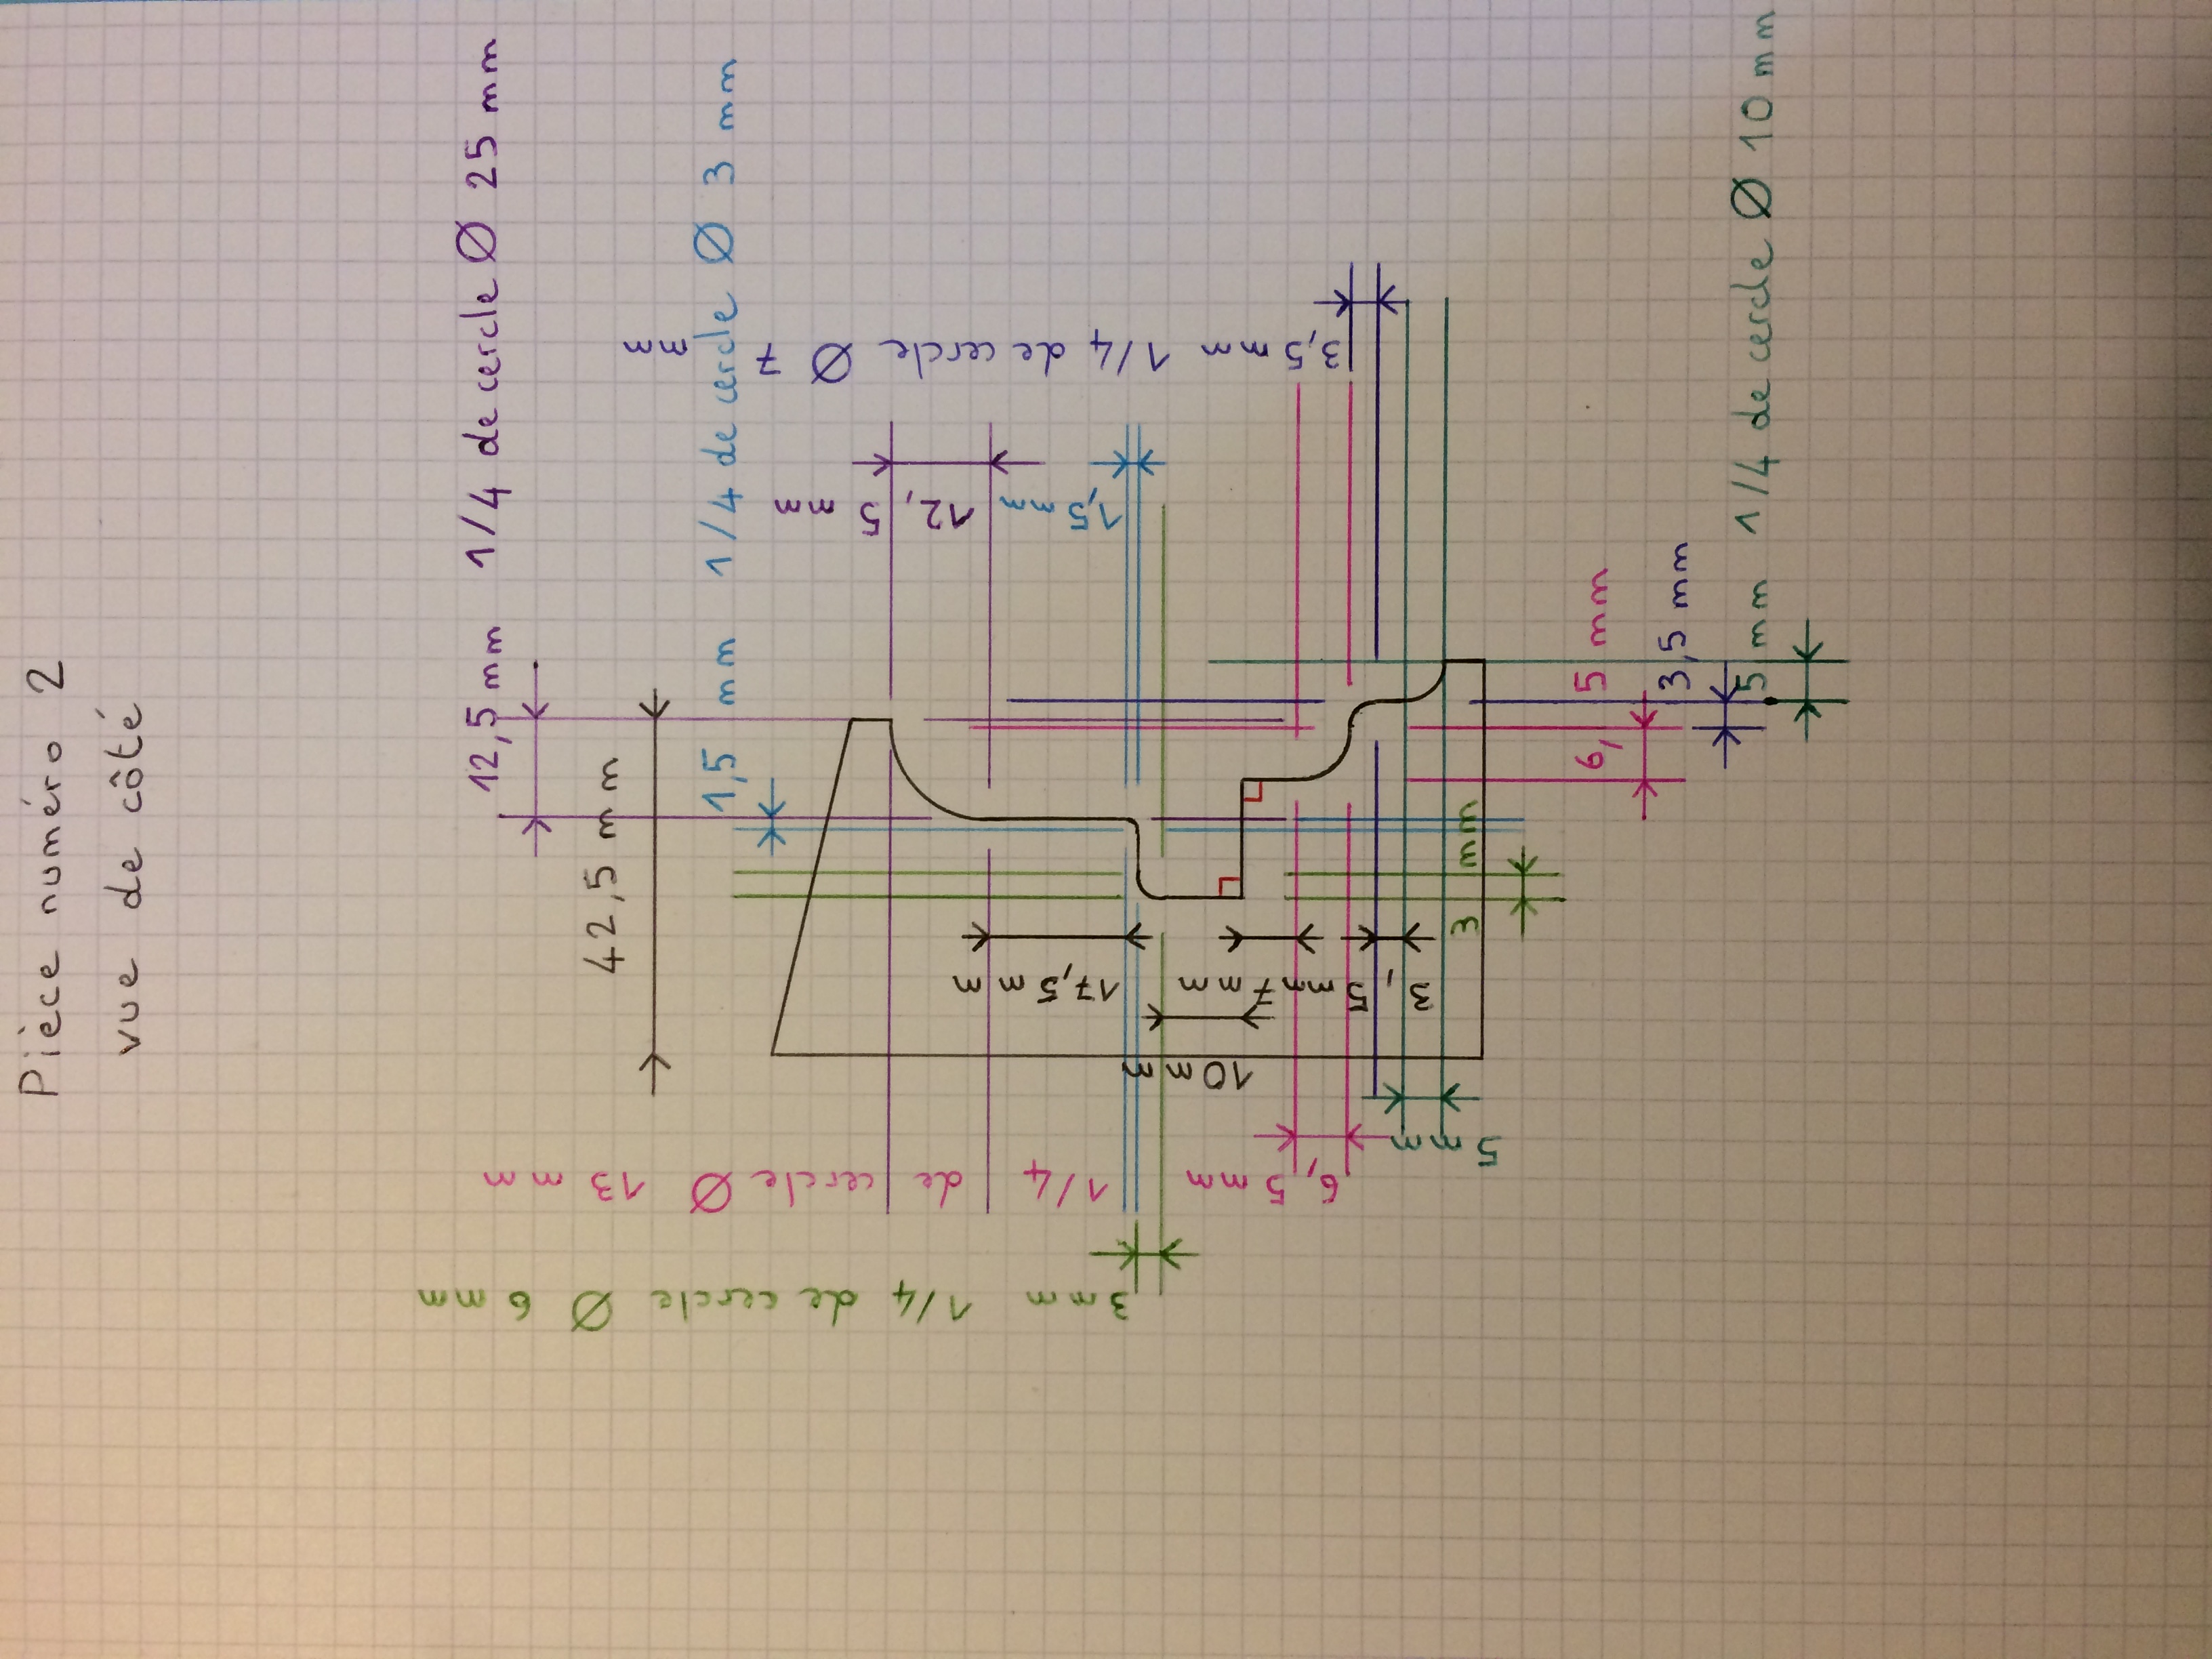 Pièce numéro 2
vue de côté
12,5 mm 1/4 de cercle Ø 25 mm
42,5 mm
1,5 mm 1/4 de cercle Ø 3 mm
3,5 mm 1/4 de cercle Ø 7 mm
12,5 mm
1,5 mm
17,5 mm
7 mm
3,5 mm
10 mm
5 mm
6,5 mm 1/4 de cercle Ø 13 mm
3 mm 1/4 de cercle Ø 6 mm
3 mm
6,5 mm
3,5 mm
5 mm 1/4 de cercle Ø 10 mm